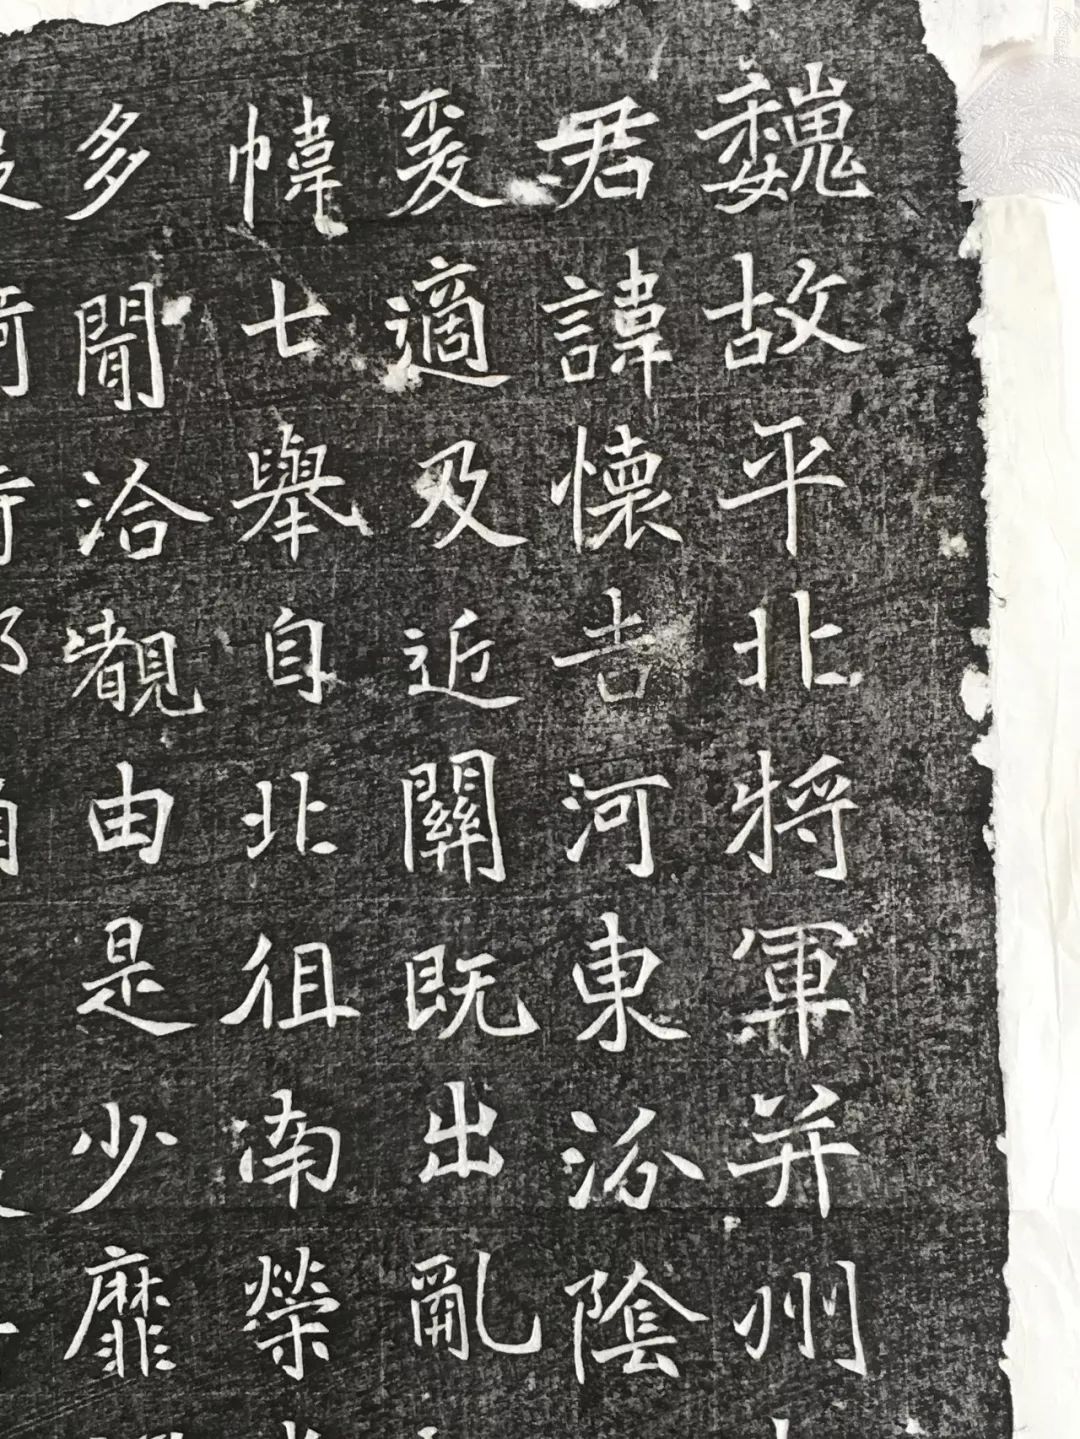 魏故平北將軍并州
君諱懷吉河東汾陰
爰適及近關既出亂
幃七舉自北徂南榮
多聞洽覩由是少靡